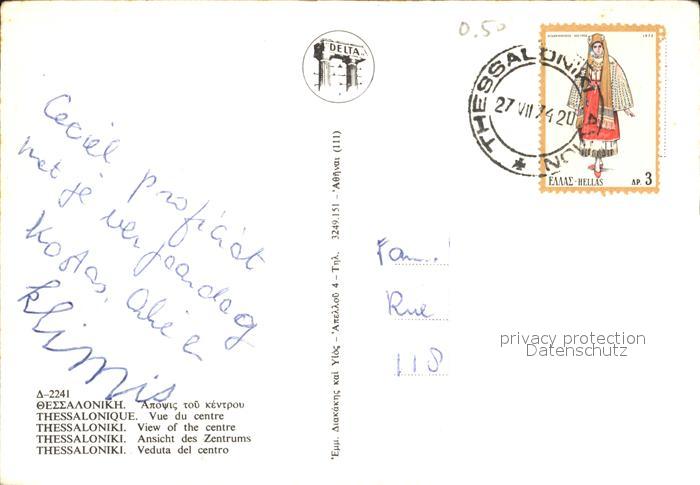 0.50
DELTA
THESSALONIKI
27 VII 74 20
ΕΛΛΑΣ-HELLAS ΔΡ. 3
Ceciel proficiat
met je verjaardag
Kostas,
klimis
Fam.
Rue
118
privacy protection
Datenschutz
Ἐμμ. Διακάκης καὶ Υἱός - Ἀπελλοῦ 4 - Τηλ. 3249.151 - Ἀθῆναι (111)
Δ-2241
ΘΕΣΣΑΛΟΝΙΚΗ. Ἄποψις τοῦ κέντρου
THESSALONIQUE. Vue du centre
THESSALONIKI. View of the centre
THESSALONIKI. Ansicht des Zentrums
THESSALONIKI. Veduta del centro